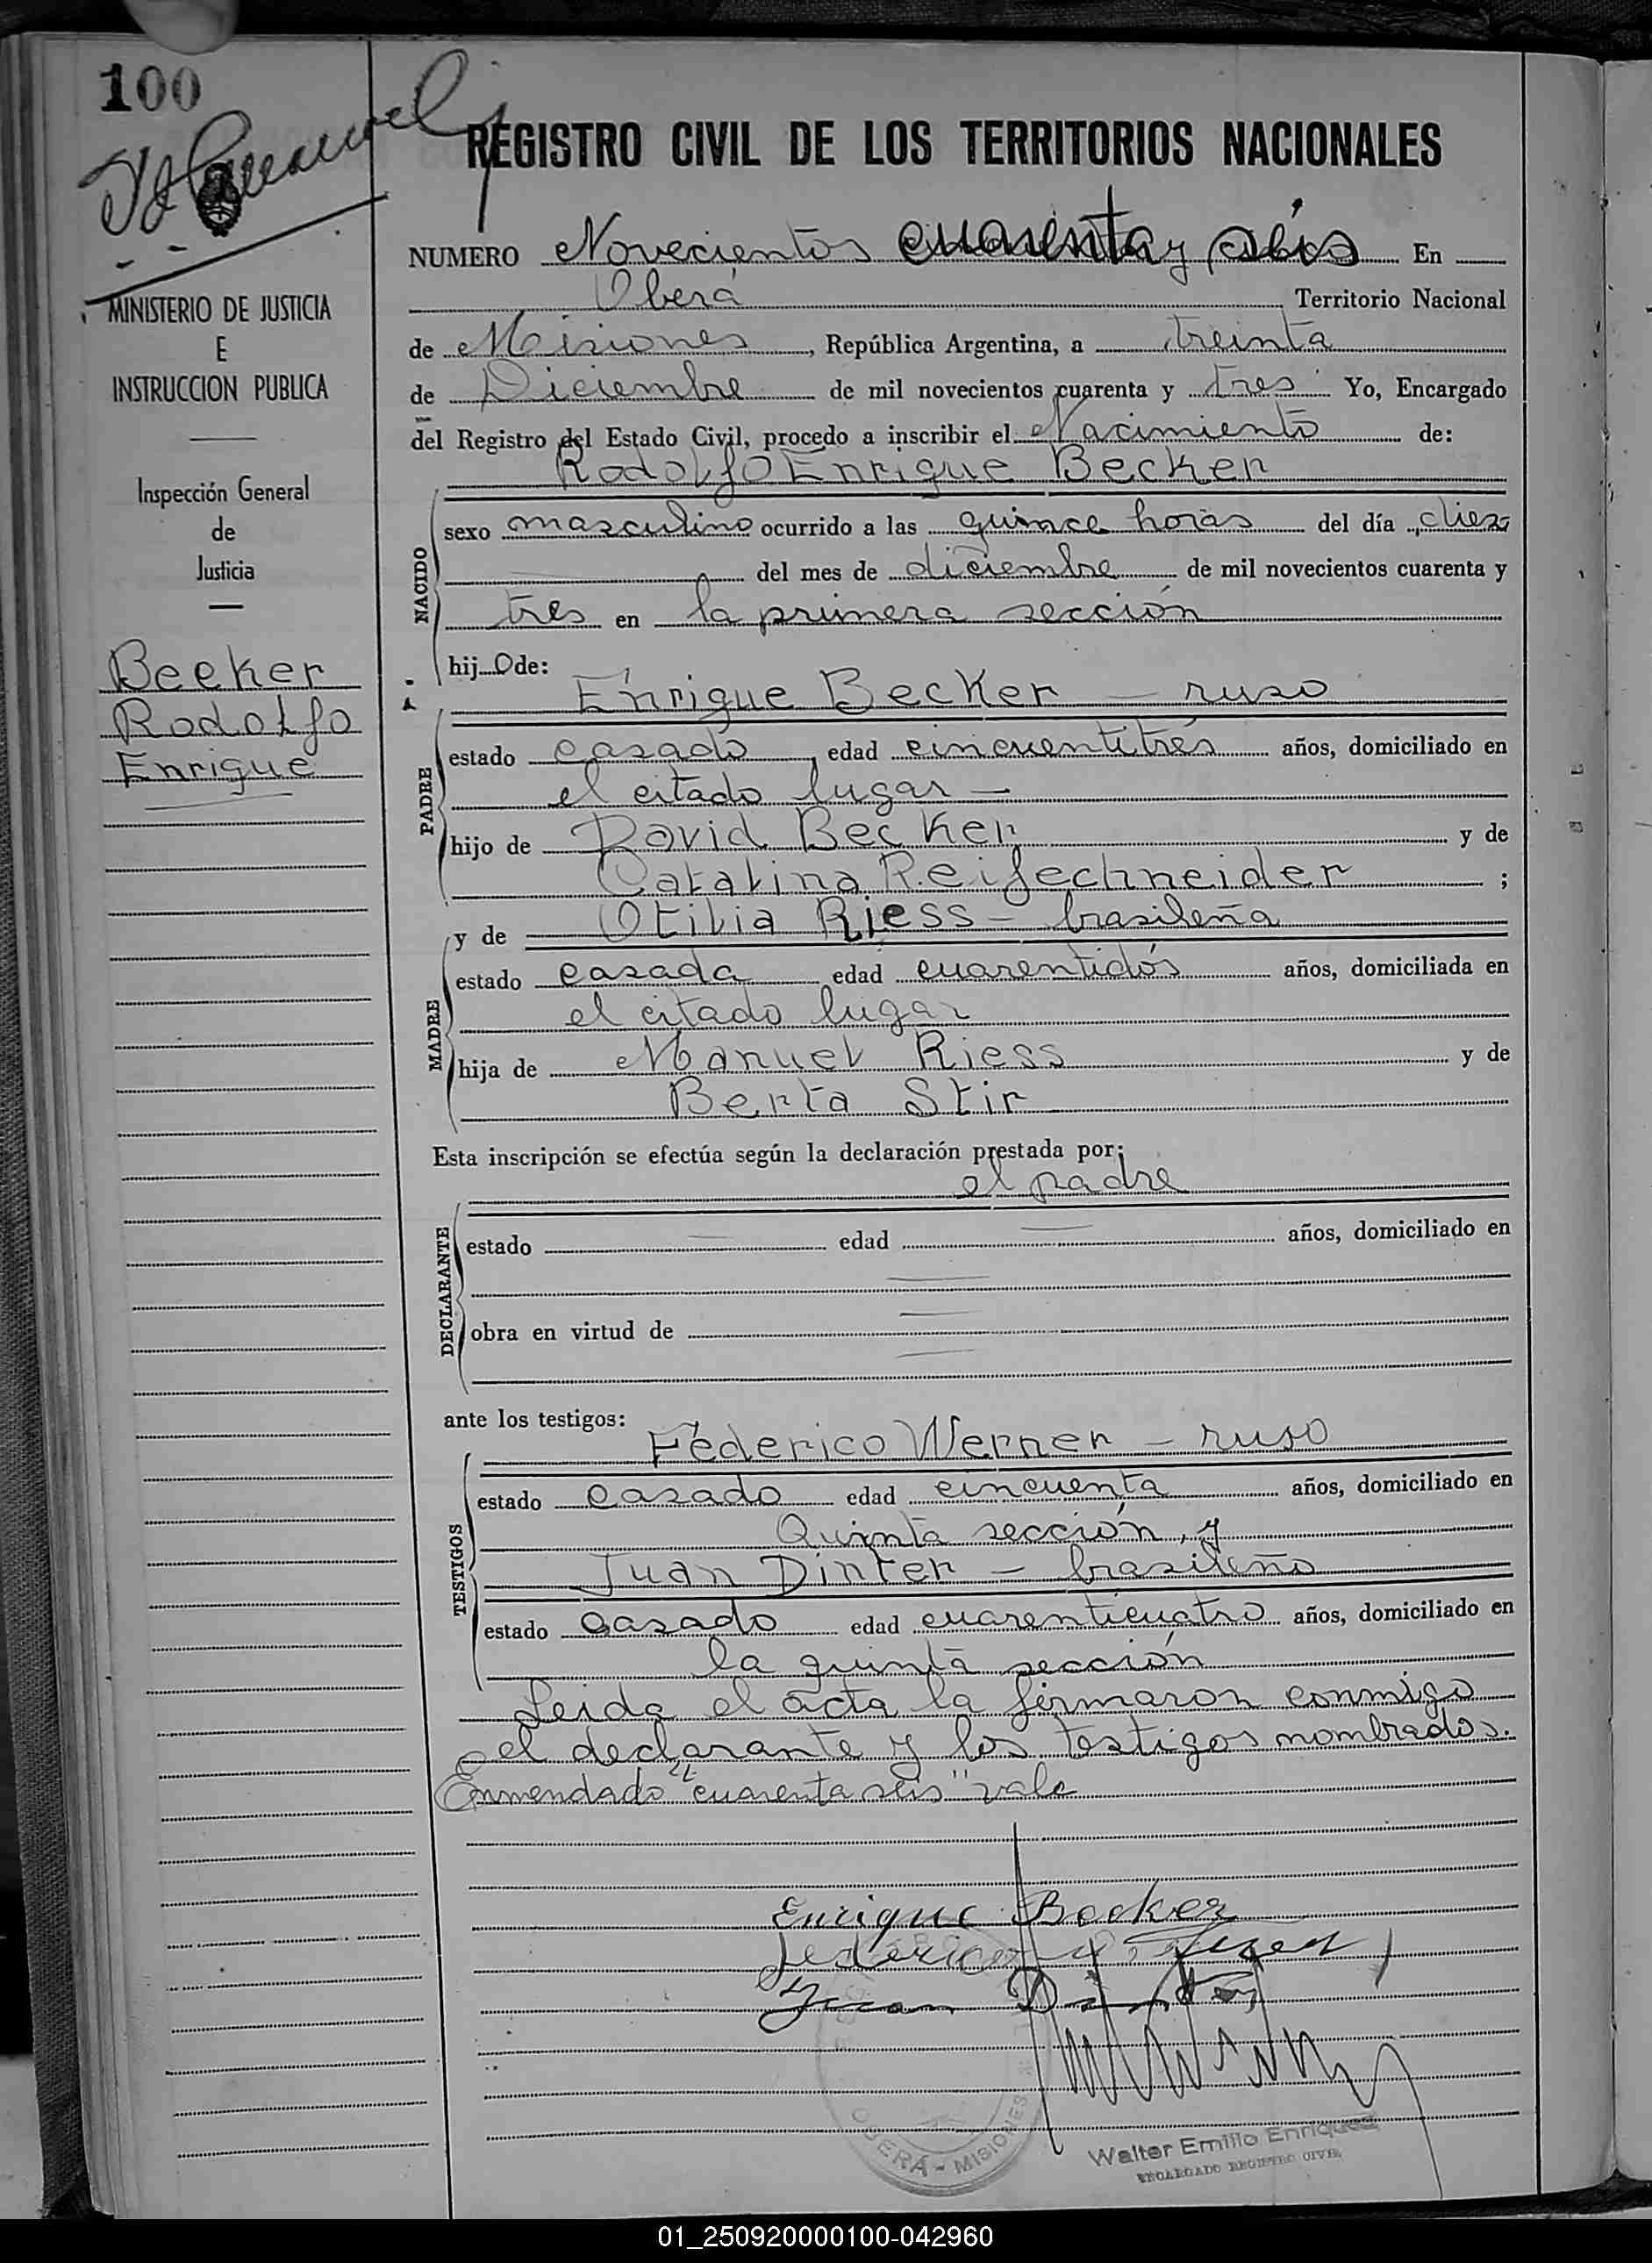 100
REGISTRO CIVIL DE LOS TERRITORIOS NACIONALES
NUMERO Novecientos cuarenta y seis En
Oberá Territorio Nacional
de Misiones, República Argentina, a treinta
de Diciembre de mil novecientos cuarenta y tres Yo, Encargado
del Registro del Estado Civil, procedo a inscribir el Nacimiento de:
Rodolfo Enrique Becker
NACIDO
sexo masculino ocurrido a las quince horas del día diez
del mes de diciembre de mil novecientos cuarenta y
tres en la primera sección
hij O de:
Enrique Becker — ruso
PADRE
estado casado, edad cincuentitrés años, domiciliado en
el citado lugar —
hijo de David Becker y de
Catalina Reifechneider ;
y de Otilia Riess — brasileña
MADRE
estado casada edad cuarentidós años, domiciliada en
el citado lugar
hija de Manuel Riess y de
Berta Stir
Esta inscripción se efectúa según la declaración prestada por:
el padre
DECLARANTE
estado — edad — años, domiciliado en
obra en virtud de
ante los testigos:
Féderico Werner — ruso
TESTIGOS
estado casado edad cincuenta años, domiciliado en
Quinta sección, y
Juan Dinter — brasileño
estado casado edad cuarenticuatro años, domiciliado en
la quinta sección
Leida el acta la firmaron conmigo
el declarante y los testigos nombrados.
Enmendado "cuarenta seis" vale
Enrique Becker
Federico
Juan Dinter
OBERÁ - MISIONES
Walter Emilio Enriquez
ENCARGADO REGISTRO CIVIL
MINISTERIO DE JUSTICIA
E
INSTRUCCION PUBLICA
Inspección General
de
Justicia
Becker
Rodolfo
Enrique
01_250920000100-042960